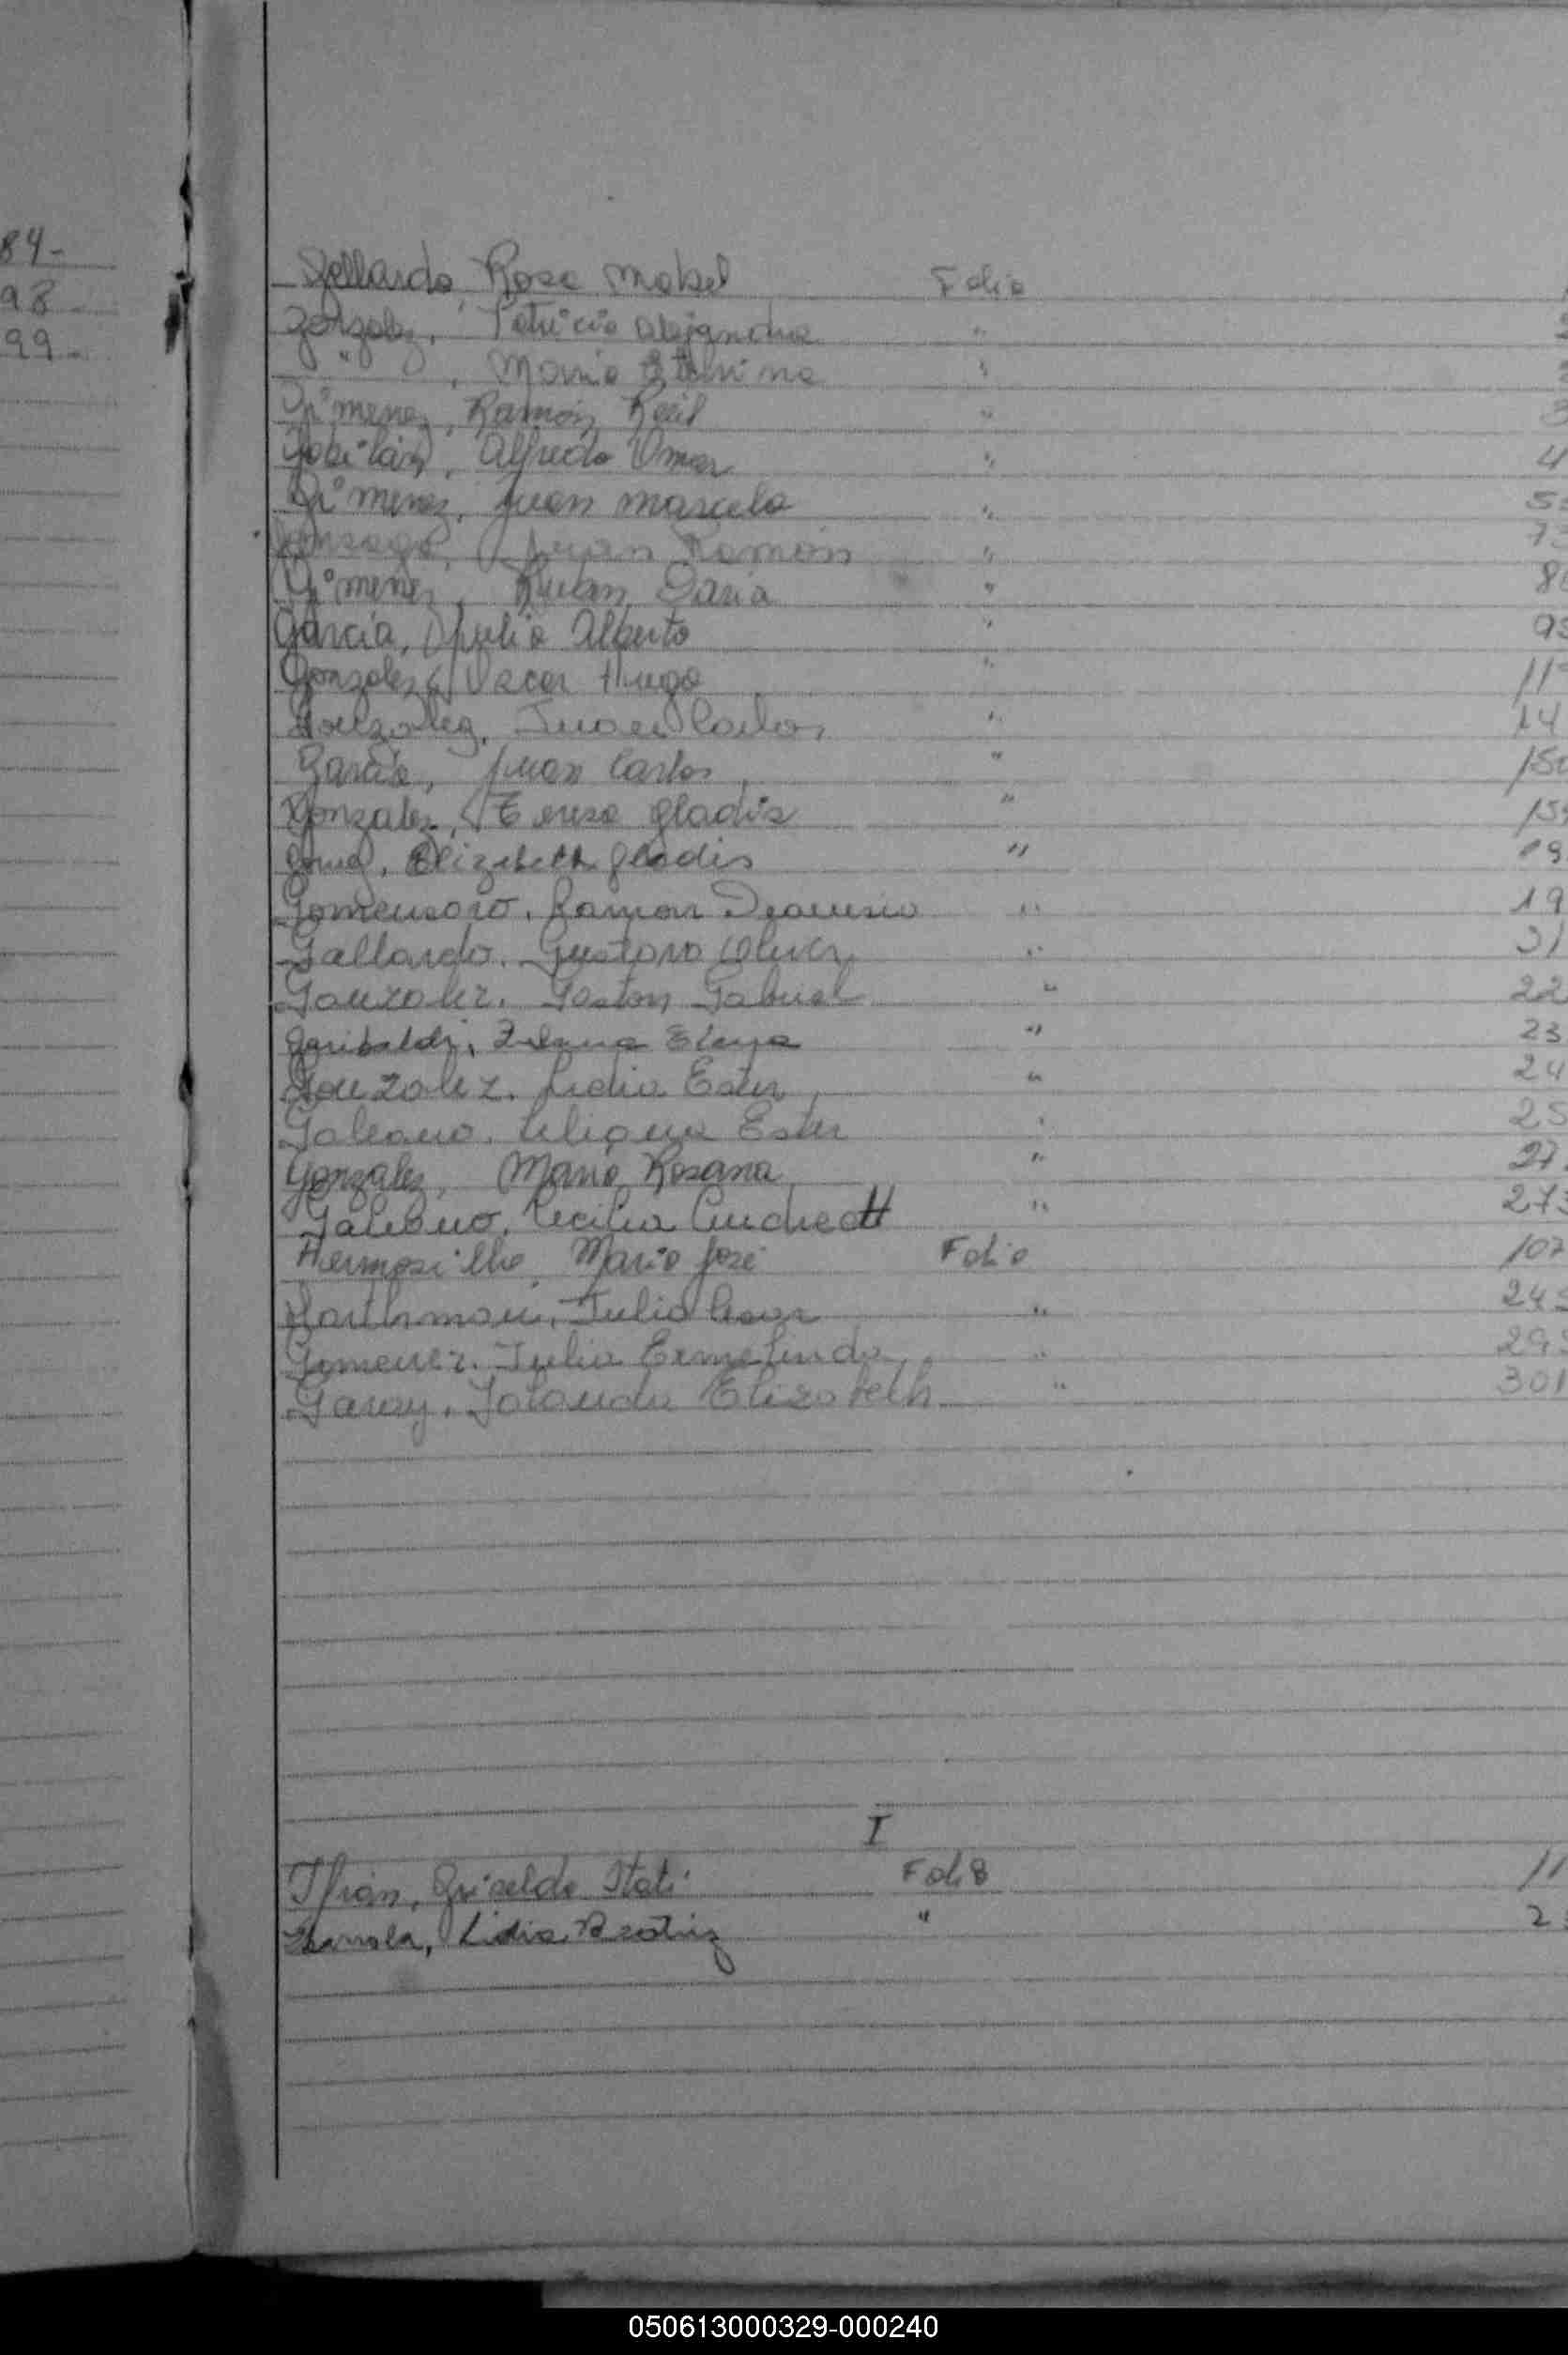 84-
98-
99-
Gallardo, Rosa Mabel Folio
Gonzalez, Patricia Alejandra "
" , Maria "
Gimenez, Ramón "
Gobilán, Alfredo Omar " 4
Gimenez, Juan Marcelo " 5
Juan Ramón " 7
Gimenez, Ruben Dario " 8
Garcia, Julio Alberto " 9
Gonzalez, Oscar Hugo " 11
Gonzalez, Juan Carlos " 14
Garcia, Juan Carlos " 15
Gonzalez, Teresa Gladis " 15
Elizabeth Gladis " 19
Gomensoro, Ramon " 19
Gallardo, Gustavo Oliver "
Gonzalez, Gaston Gabriel " 22
Garibaldi, " 23
Gonzalez, Lidia Ester " 24
Galeano, Liliana Ester " 25
Gonzalez, Maria Rosana " 27
Galeano, Cecilia " 27
Hermosilla, Mario José Folio 107
Julio Cesar " 24
Julia Ermelinda " 29
Garay, Yolanda Elizabeth " 301
I
Griselda Itati Folio 11
Lidia Beatriz " 2
050613000329-000240